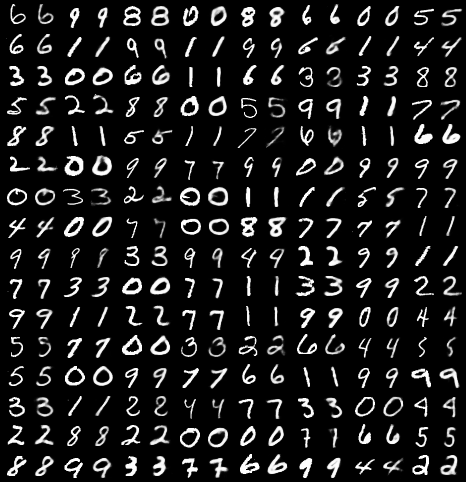 6 6 9 9 8 8 0 0 8 8 6 6 0 0 5 5
6 6 1 1 9 9 1 1 9 9 6 6 1 1 4 4
3 3 0 0 6 6 1 1 6 6 3 3 3 3 8 8
5 5 2 2 8 8 0 0 5 5 9 9 1 1 7 7
8 8 1 1 5 5 1 1 7 7 6 6 1 1 6 6
2 2 0 0 9 9 7 7 9 9 0 0 9 9 9 9
0 0 3 3 2 2 0 0 1 1 1 1 5 5 7 7
4 4 0 0 7 7 0 0 8 8 7 7 7 7 1 1
9 9 9 9 3 3 9 9 4 9 2 2 9 9 1 1
7 7 3 3 0 0 7 7 1 1 3 3 9 9 2 2
9 9 1 1 2 2 7 7 1 1 9 9 0 0 4 4
5 5 7 7 0 0 3 3 2 2 6 6 4 4 5 5
5 5 0 0 9 9 7 7 6 6 1 1 9 9 9 9
3 3 1 1 2 2 4 4 7 7 3 3 0 0 4 4
2 2 8 8 2 2 0 0 0 0 7 7 6 6 5 5
8 8 9 9 3 3 7 7 6 6 9 9 4 4 2 2